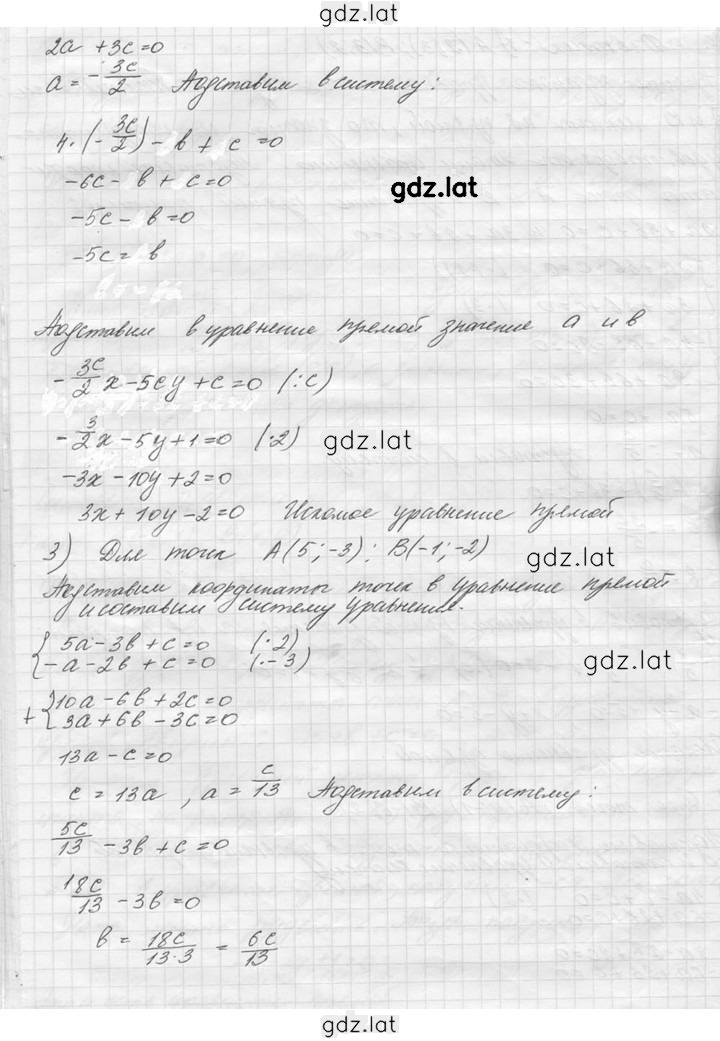 gdz.lat
2a + 3c = 0
a = - 3c/2 Подставим в систему:
4·(- 3c/2) - в + c = 0
-6c - в + c = 0
gdz.lat
-5c - в = 0
-5c = в
Подставим в уравнение прямой значение а и в
- 3c/2 x - 5cy + c = 0 (:c)
- 3/2 x - 5y + 1 = 0 (·2)
gdz.lat
-3x - 10y + 2 = 0
3x + 10y - 2 = 0 Искомое уравнение прямой
3) Для точек A(5; -3); B(-1; -2)
gdz.lat
Подставим координаты точек в уравнение прямой
и составим систему уравнение.
{ 5a - 3в + c = 0 (·2)
{ -a - 2в + c = 0 (·-3)
gdz.lat
+ { 10a - 6в + 2c = 0
{ 3a + 6в - 3c = 0
13a - c = 0
c = 13a, a = c/13 Подставим в систему:
5c/13 - 3в + c = 0
gdz.lat
18c/13 - 3в = 0
в = 18c/13·3 = 6c/13
gdz.lat